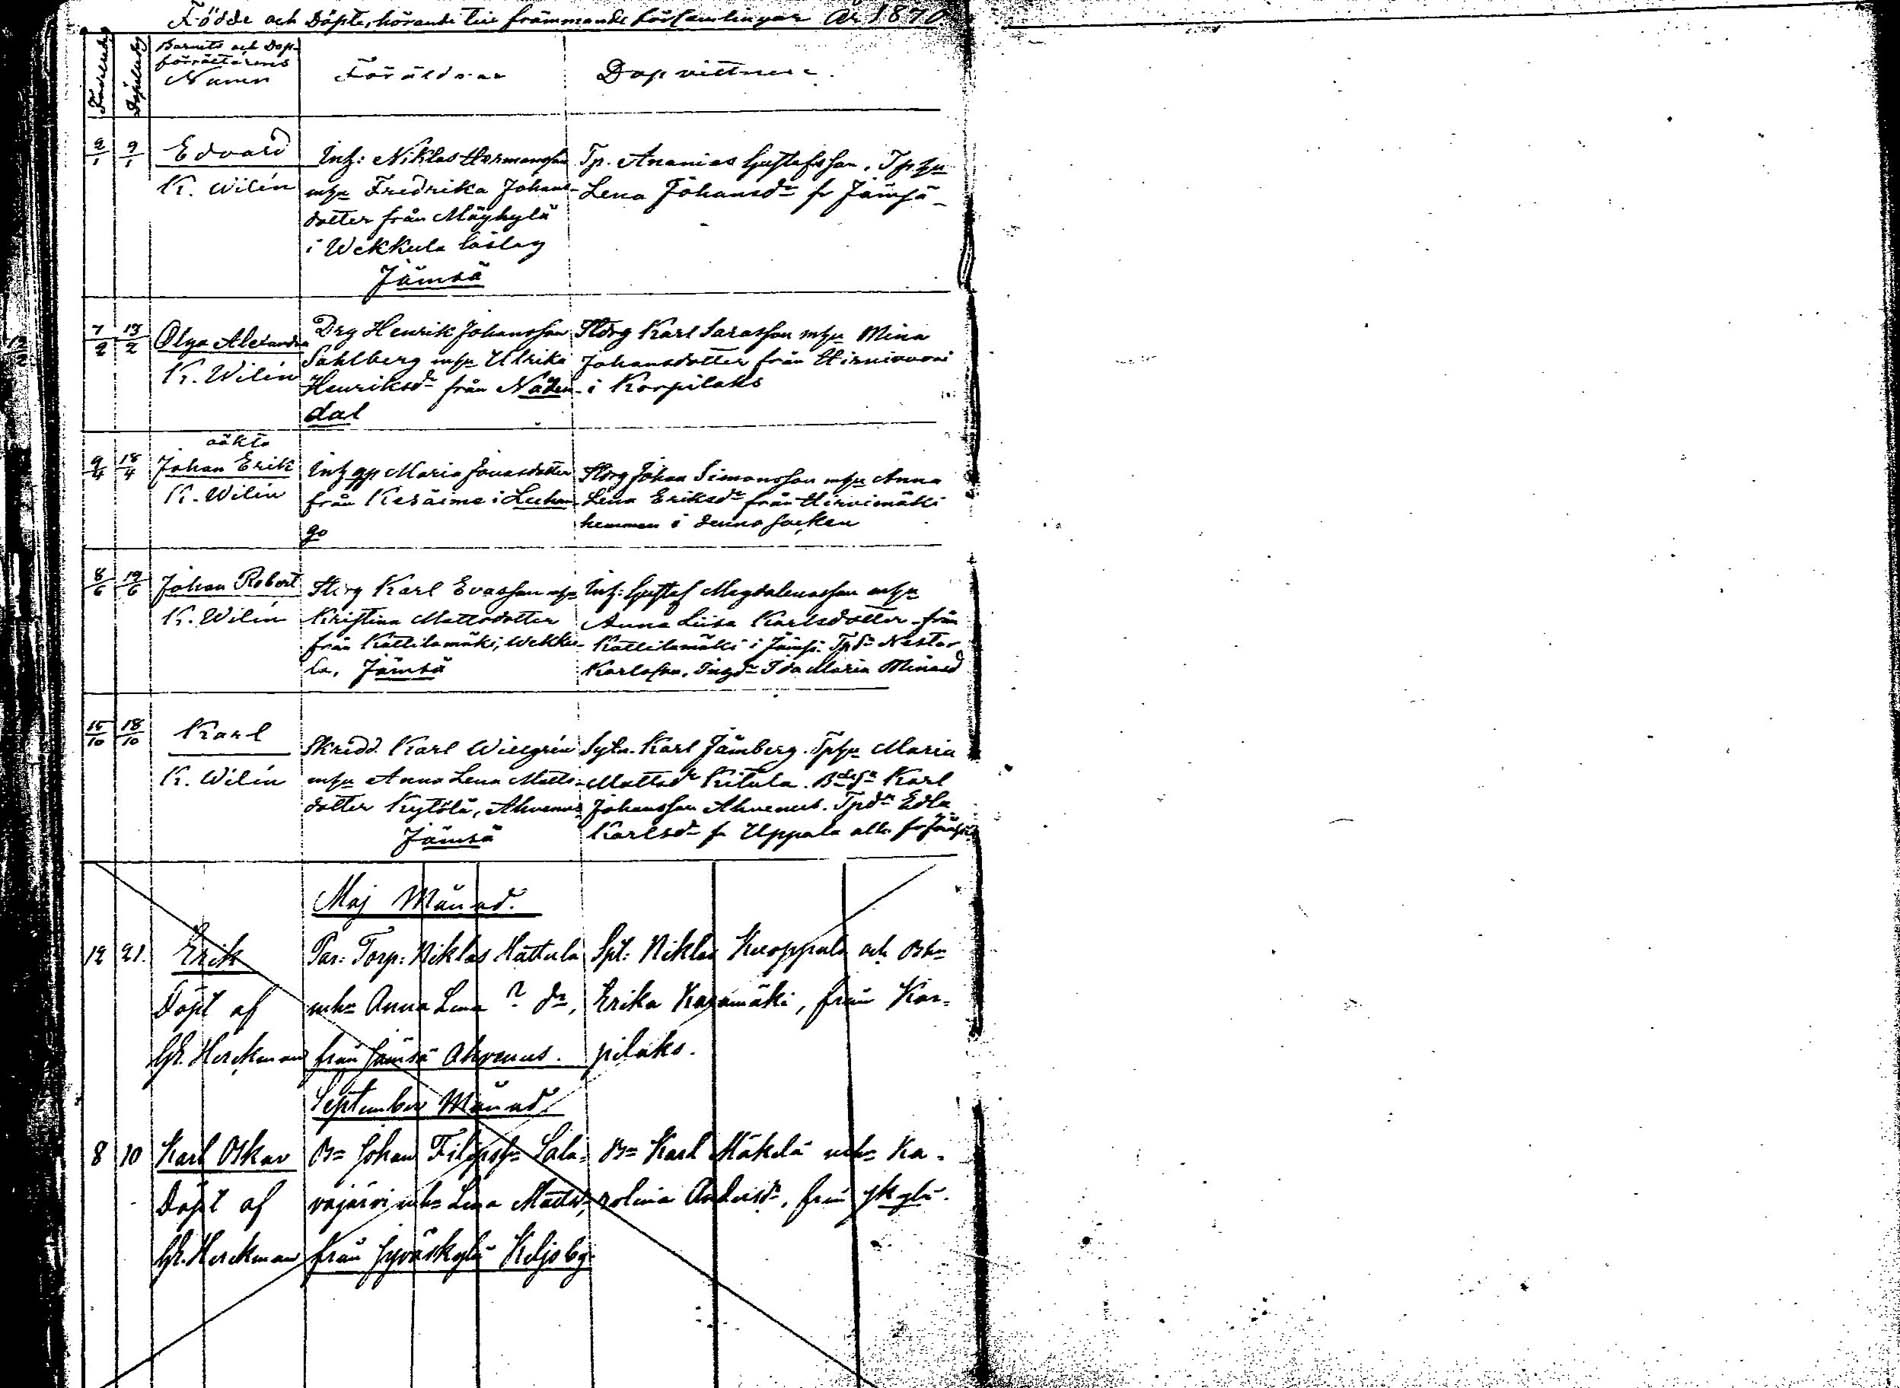 Födde och Döpte, hörande till främmande församlingar År 1870
Födelsedag
Döpelsedag
Barnets och Dop-
förrättarens
Namn
Föräldrar
Dopvittnen.
2/1 9/1 Edvard
K. Wilén
Inh: Niklas Hermansson
mhu Fredrika Johans-
dotter från Mäyhylä
i Wekkula låslag
Jämsä
Tp. Ananias Gustafsson, Tphu
Lena Johansdr fr Jämsä
7/2 13/2 Olga Alexandra
K. Wilén
Drg Henrik Johansson
Sahlberg mhu Ulrika
Henriksdr från Nåden-
dal
Stdrg Karl Sarasson mhu Mina
Johansdotter från Hirnivuori
i Korpilaks
9/4 18/4 oäkta
Johan Erik
K. Wilén
Inh qp Maria Jonasdotter
från Keräime i Luhan-
go
Stdrg Johan Simonsson mhu Anna
Lena Eriksdr från Hirvimäki
hemman i denna socken
8/6 19/6 Johan Robert
K. Wilén
Stdrg Karl Evasson mhu
Kristina Mattsdotter
från Kattilamäki, Wekku-
la, Jämsä
Inh: Gustaf Magdalenasson mhu
Anna Lisa Karlsdotter från
Kattilamäki i Jämsä. Tpdr Nestor
Karlsson, Pigdr Ida Maria Minasd
15/10 18/10 Karl
K. Wilén
Skrädd. Karl Willgrén
mhu Anna Lena Matts-
dotter Kytölä, Ahvenus
Jämsä
Sytn. Karl Jämberg. Tphu Maria
Mattsdr Kitula. Bdesn Karl
Johansson Ahvenus. Tpdr Edla
Karlsdr fr Uppala alla fr Jämsä
Maj Månad.
12 21. Erik
Döpt af
Gk. Herckman
Par: Torp: Niklas Hattula
mhu Anna Lena ? dr,
från Jämsä Ahvenus.
Spl: Niklas Kuoppala och Bhu
Erika Karamäki, från Kor-
pilaks.
September Månad.
8 10 Karl Oskar
Döpt af
Gk. Herckman
Bn Johan Filipsson Sala-
vajärvi mhu Lena Mattsdr,
från Jyväskylä Keljoby.
Bn Karl Mäkelä mhu Ka-
rolina Andersdr, från Jkylä.